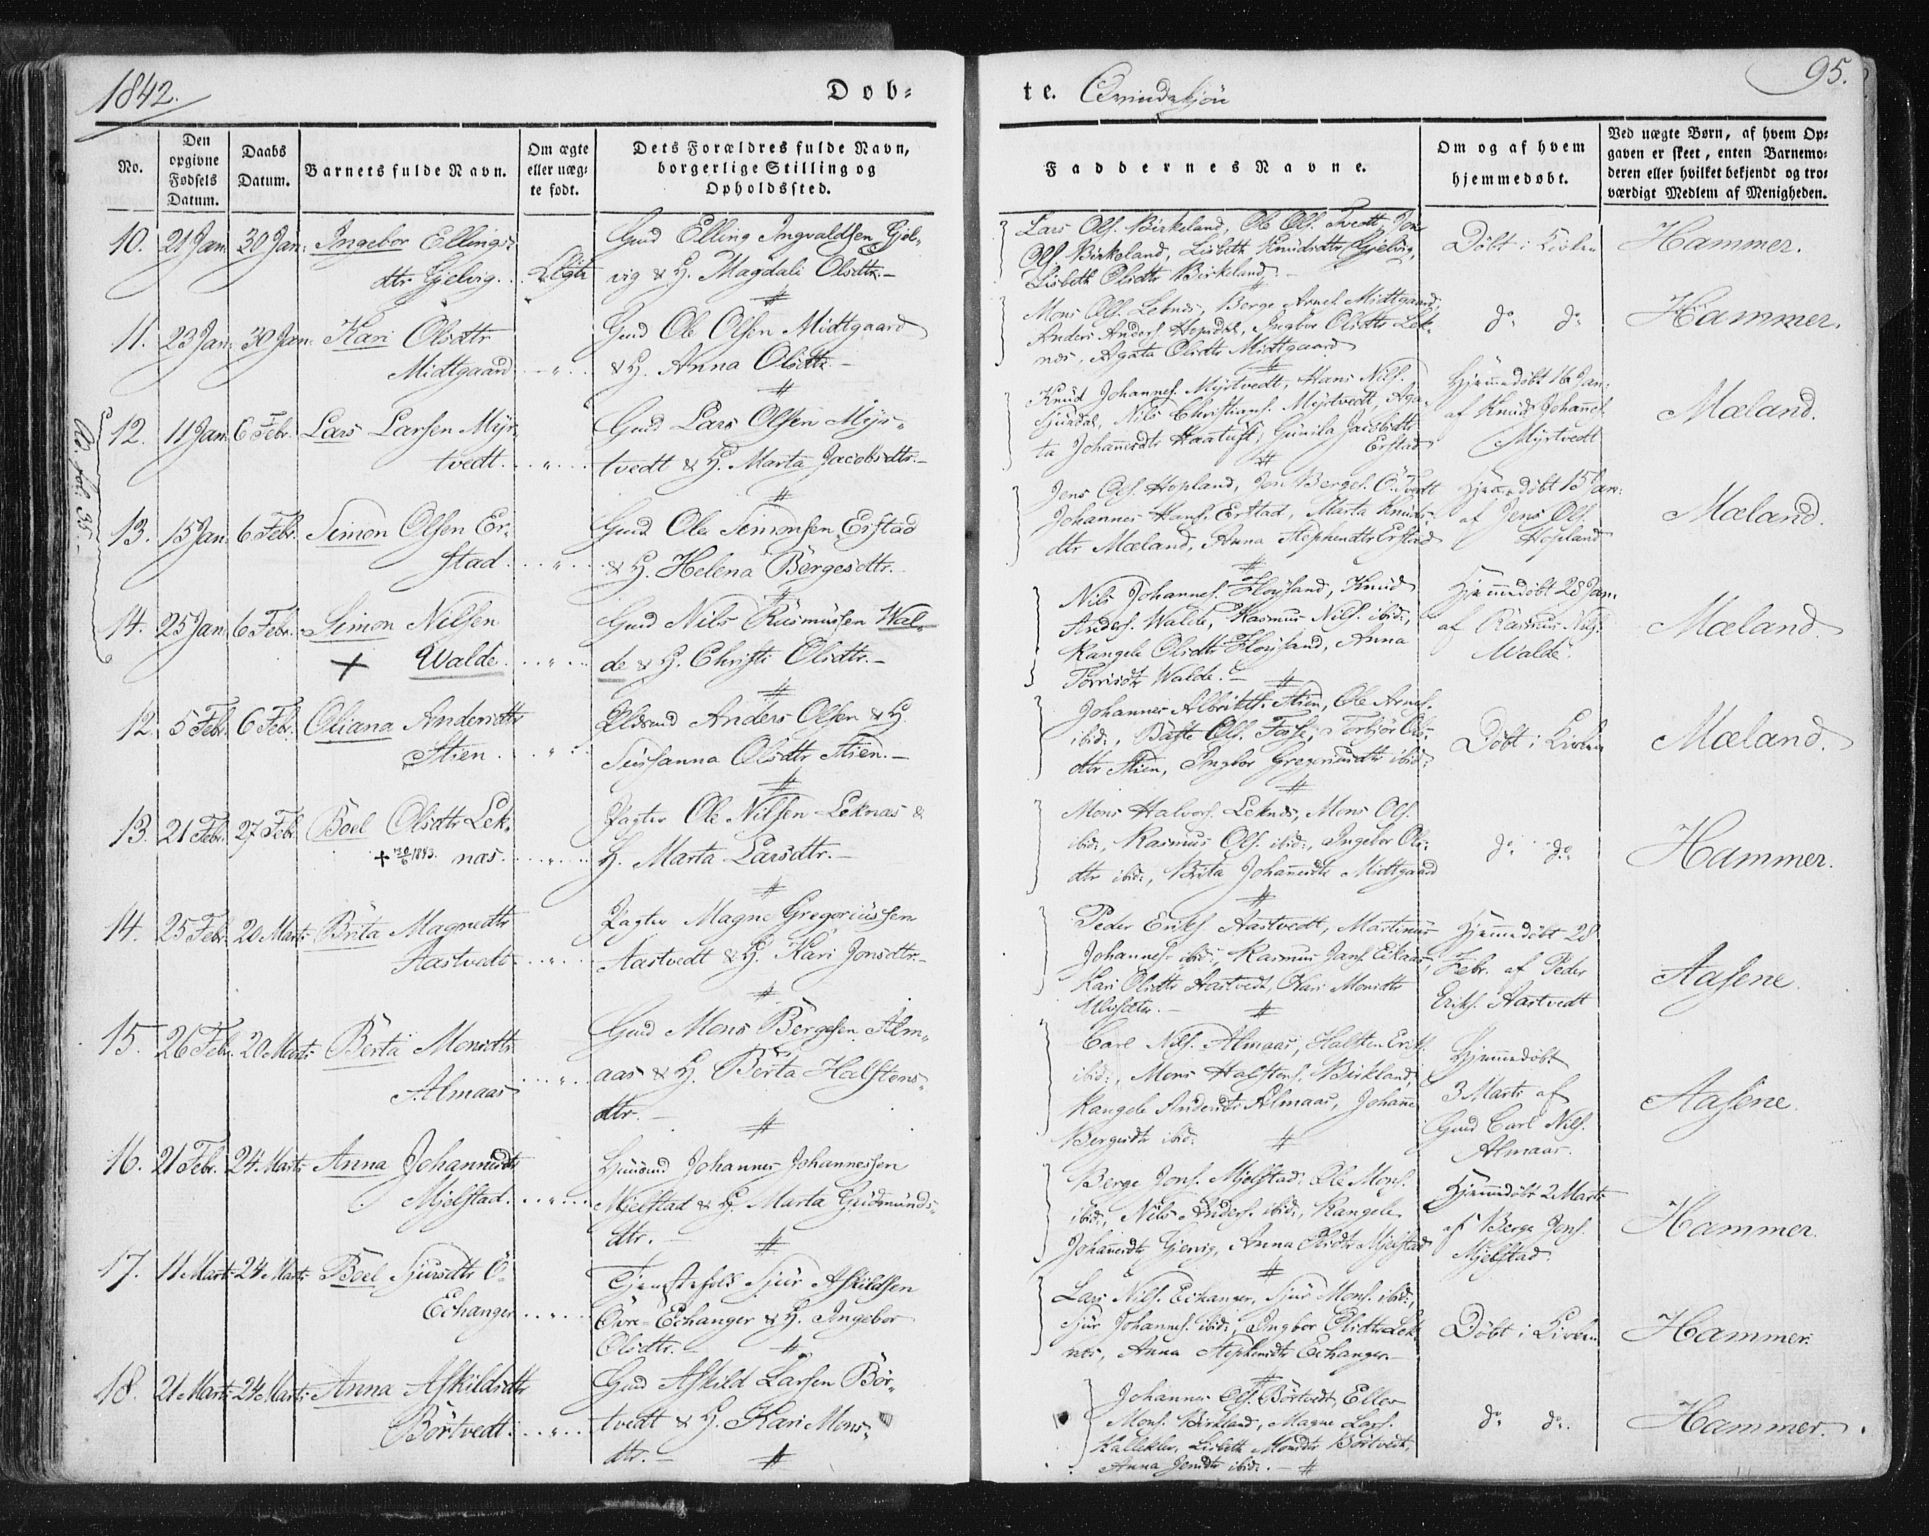 1842.
Døb-
te. Qvindekjøn
95.
No.
Den opgivne Fødsels Datum.
Daabs Datum.
Barnets fulde Navn.
Om ægte eller uægte født.
Dets Forældres fulde Navn, borgerlige Stilling og Opholdssted.
Faddernes Navne.
Om og af hvem hjemmedøbt.
Ved uægte Børn, af hvem Opgaven er skeet, enten Barnemoderen eller hvilket bekjendt og troværdigt Medlem af Menigheden.
10. 21 Jan. 30 Jan. Ingebor Ellings-
dtr Gjelvig. Ægte
Gmd Elling Ingvaldsen Gjel-
vig & H. Magdali Olsdtr.
Lars Ols. Birkeland, Ole Ols. Tvett, Jon
Ols. Birkeland, Lisbeth Knudsdtr Gjelvig,
Lisbeth Olsdtr Birkeland.
Døbt i Kirken
Hammer.
11. 23 Jan. 30 Jan. Kari Olsdtr
Midtgaard
Gmd Ole Olsen Midtgaard
& H. Anna Olsdtr.
Mons Ols. Leknes, Berge Arnes. Midtgaard,
Anders Anders. Hopsdal, Ingbor Olsdtr Lek-
nes, Agata Olsdtr Midtgaard
do do
Hammer.
12. 11 Jan. 6 Febr. Lars Larsen Myr-
tvedt
Gmd Lars Olsen Myr-
tvedt & H. Marta Jacobsdtr.
Knud Johannes. Myrtvedt, Hans Nils.
Nils Christians. Myrtvedt, Aga-
ta Johannesdtr Gunila Jacobsdtr
Erstad
Hjemmedøbt 16 Jan.
af Knud Johannes.
Myrtvedt
Mæland.
13. 15 Jan. 6 Febr. Simon Olsen Er-
stad
Gmd Ole Simonsen Erstad
& H. Helena Børgesdtr.
Jens Ols. Hopland, Jon Berges.
Johannes Hans. Erstad, Marta Knuds-
dtr Mæland, Anna Stephensdtr Erstad
Hjemmedøbt 15 Jan.
af Jens Ols.
Hopland
Mæland.
14. 25 Jan. 6 Febr. Simon Nilsen
+ Walde
Gmd Nils Rasmussen Wal-
de & H. Christi Olsdtr.
Nils Johannes. Fløysand, Knud
Anders. Walde, Rasmus Nils. ibid.,
Rangele Olsdtr Fløysand, Anna
Torrisdtr Walde.
Hjemmedøbt 28 Jan
af Rasmus Nils.
Walde.
Mæland
12. 5 Febr. 6 Febr. Oliana Andersdtr
Stien
Anders Olsen & H.
Susanna Olsdtr Stien.
Johannes Albrikts. Stien, Ole Arnes.
ibid., Ols. Fosse, Torbjør Ols-
dtr Stien, Ingbor Gregoriusdtr ibid.
Døbt i Kirken
Mæland.
13. 21 Febr. 27 Febr. Boel Olsdtr Lek-
+ 1843. nes
Pagter Ole Nilsen Leknes &
H. Marta Larsdtr.
Mons Halvors. Leknes, Mons Ols.
ibid., Rasmus Ols. ibid., Ingebor Ols-
dtr ibid., Brita Johannesdtr Midtgaard
do do
Hammer.
14. 25 Febr. 20 Marts Brita Magnedtr
Aastvedt
Pagter Magne Gregoriussen
Aastvedt & H. Kari Jonsdtr.
Peder Eriks. Aastvedt, Martinus
Johannes. ibid., Rasmus Jans. Eikaas,
Kari Olsdtr Aastvedt, Kari Monsdtr
Hjemmedøbt 28
Febr. af Peder
Eriks. Aastvedt
Aasene.
15. 26 Febr. 20 Marts Berta Monsdtr
Almaas
Gmd Mons Bergesen Alm-
aas & H. Berta Halstens-
dtr.
Carl Nils. Almaas, Halsten Eriks.
ibid., Mons Halstens. Birkland,
Rangele Andersdtr Almaas, Johanne
Bergesdtr ibid.
Hjemmedøbt
3 Marts af
Gmd Carl Nils.
Almaas.
Aasene.
16. 21 Febr. 24 Marts Anna Johannesdtr
Mjelstad
Huusmd Johannes Johannessen
Mjelstad & H. Marta Gudmunds-
dtr.
Berge Jons. Mjelstad, Ole Mons.
ibid., Nils Anders. ibid., Rangele
Johannesdtr Gjervig, Anna Olsdtr Mjelstad
Hjemmedøbt 2 Marts
af Berge Jons.
Mjelstad.
Hammer.
17. 11 Marts 24 Marts Boel Sjursdtr Ö.
Echanger
Tjenestefolk Sjur Askildsen
Övre-Echanger & H. Ingebor
Olsdtr.
Lars Nils. Echanger, Sjur Mons. ibid.,
Sjur Johannes. ibid., Ingbor Olsdtr Lek-
nes, Anna Stephensdtr Echanger
Døbt i Kirken
Hammer.
18. 21 Marts 24 Marts Anna Askildsdtr
Børtvedt
Gmd Askild Larsen Bør-
tvedt & H. Kari Mons-
dtr.
Johannes Ols. Børtvedt, Ellev
Mons. Birkland, Magne Lars.
Kalleklev, Lisbeth Monsdtr Børtvedt,
Anna Jensdtr ibid.
do do.
Hammer.